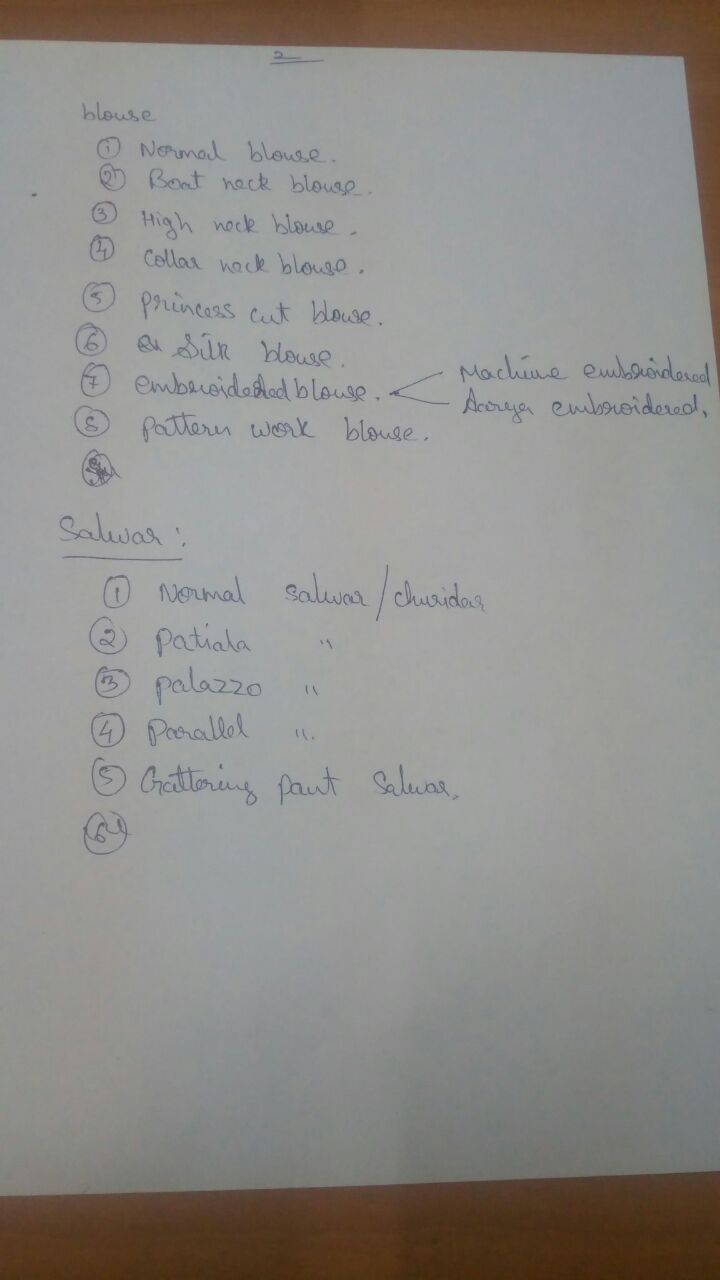 2
blouse
① Normal blouse.
② Boat neck blouse.
③ High neck blouse.
④ Collar neck blouse.
⑤ princess cut blouse.
⑥ Silk blouse.
⑦ embroidered blouse. Machine embroidered
Aarya embroidered.
⑧ pattern work blouse.
Salwar :
① Normal salwar/churidar
② Patiala "
③ palazzo "
④ Parallel ".
⑤ Gattering pant Salwar.
⑥